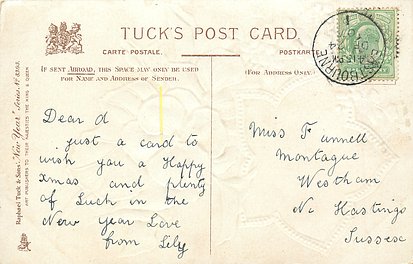 TUCK'S POST CARD.
CARTE POSTALE.
POSTKARTE
IF SENT ABROAD, THIS SPACE MAY ONLY BE USED
FOR NAME AND ADDRESS OF SENDER.
(FOR ADDRESS ONLY.)
EASTBOURNE
Raphael Tuck & Sons' "New Year" Series
ART PUBLISHERS TO THEIR MAJESTIES THE KING & QUEEN
Dear d
just a card to
wish you a Happy
Xmas and plenty
of Luck in the
New year Love
from Lily
Miss Funnell
Montague
Westham
Nr Hastings
Sussex